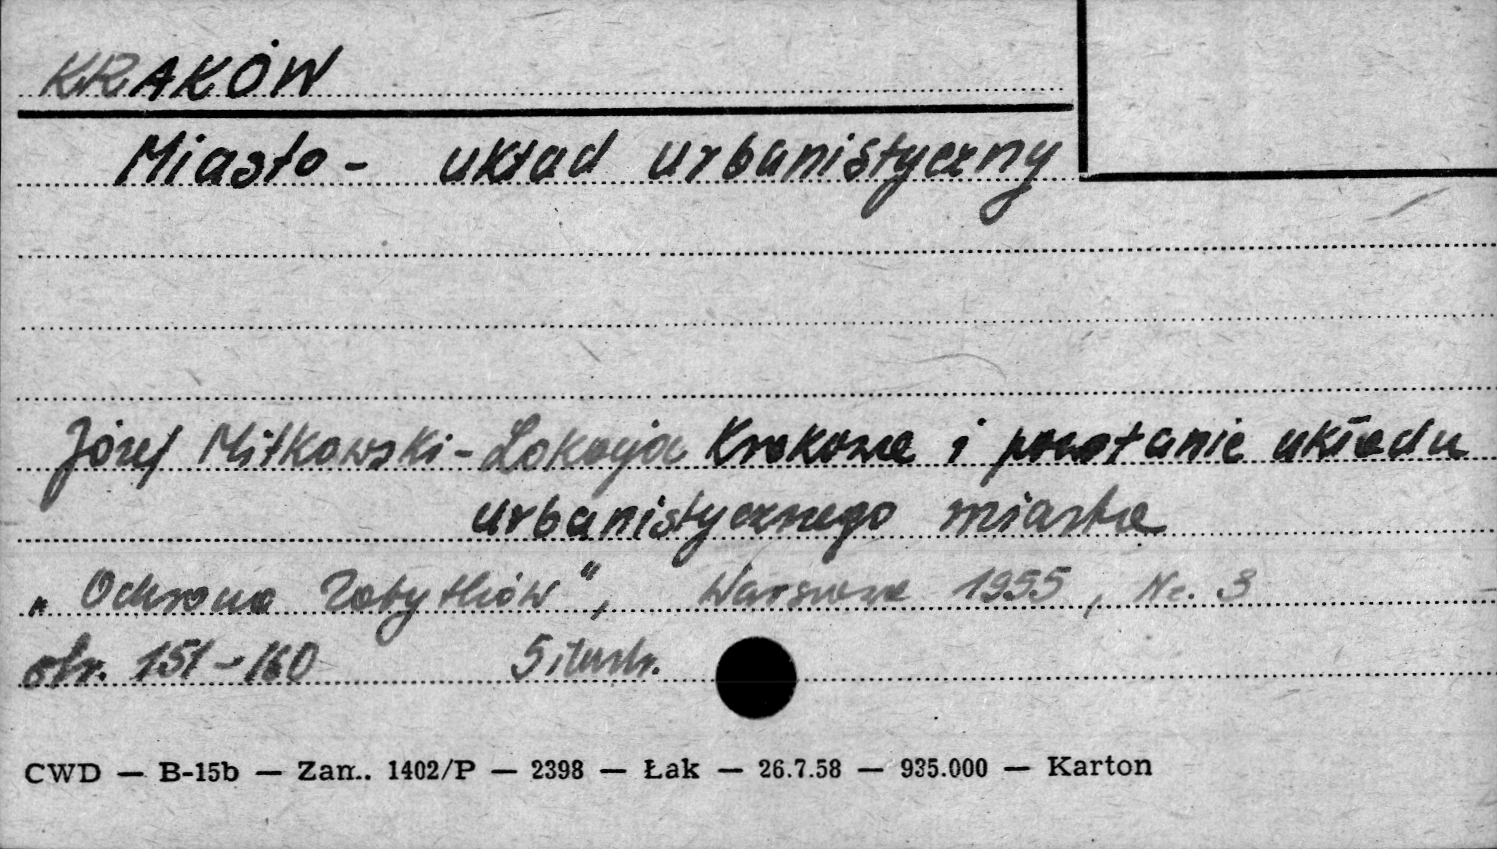 KRAKÓW
Miasto - układ urbanistyczny
Józef Mitkowski - Lokacja Krakowa i powstanie układu
urbanistycznego miasta
„Ochrona Zabytków", Warszawa 1955, Nr. 3
str. 151-160 5 ilustr.
CWD — B-15b — Zam. 1402/P — 2398 — Łak — 26.7.58 — 935.000 — Karton